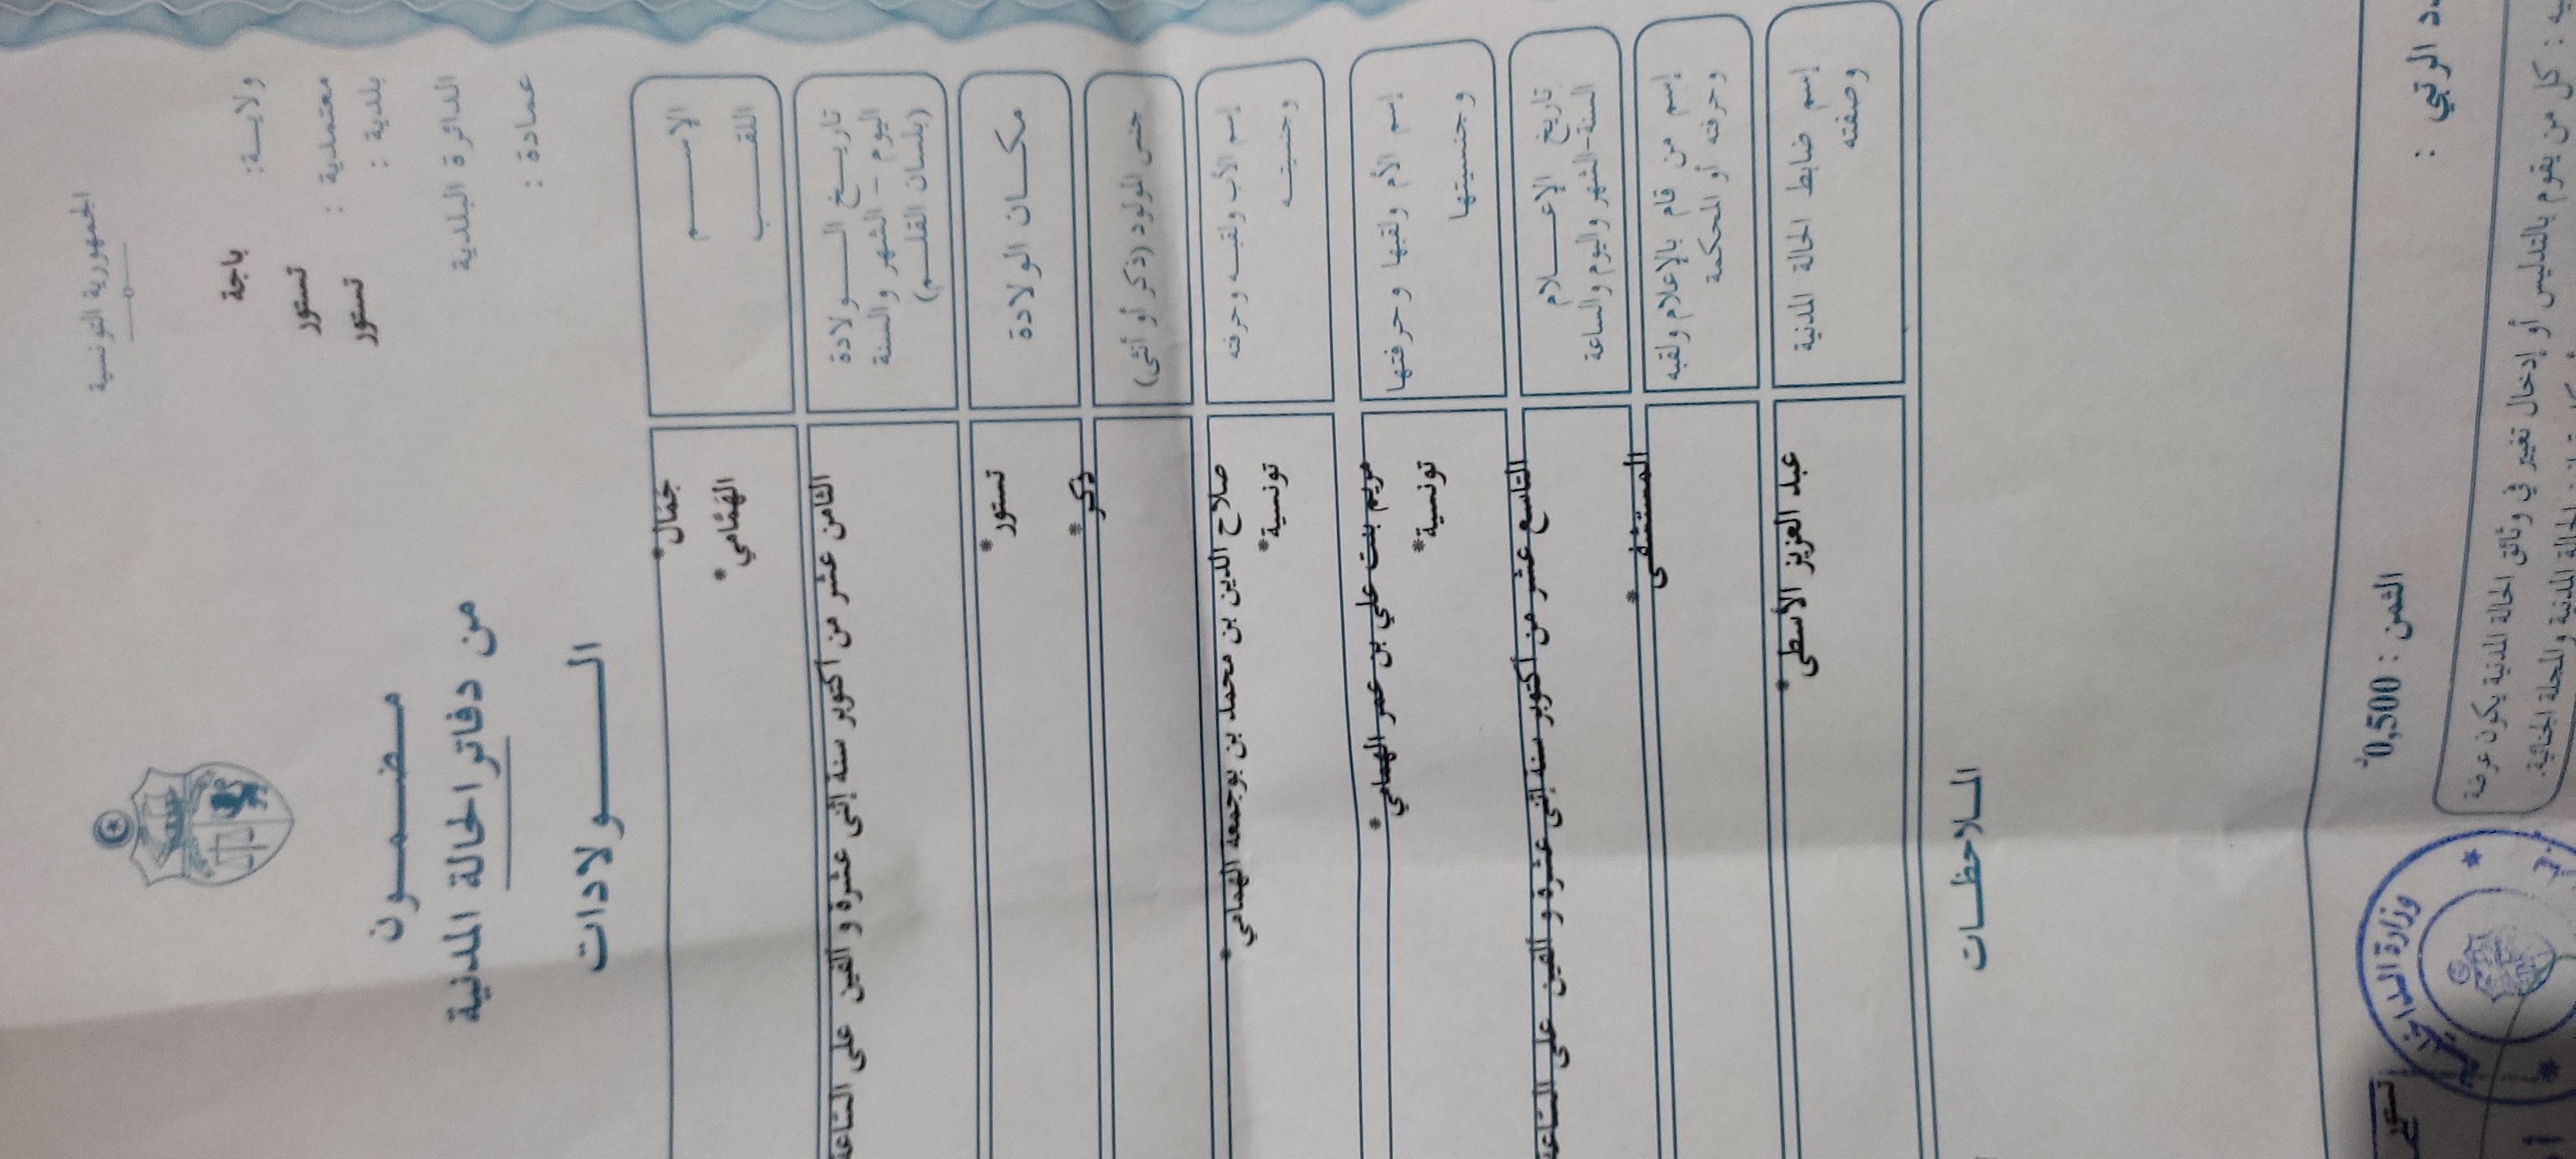 الجمهورية التونسية
ولاية: باجة
معتمدية : تستور
بلدية : تستور
الدائرة البلدية
عمادة :
مضمون
من دفاتر الحالة المدنية
الولادات
الاسم جَمَال*
اللقب الهَمَّامي*
تاريخ الولادة
اليوم - الشهر والسنة
(بلسان القلم)
الثامن عشر من أكتوبر سنة إثنى عشرة و ألفين على الساعة
مكان الولادة تستور*
جنس المولود (ذكر أو أنثى) ذكر*
إسم الأب ولقبه وحرفته صلاح الدين بن محمد بن بوجمعه الهمامي*
وجنسيته تونسية*
إسم الأم ولقبها وحرفتها مريم بنت علي بن عمر الهمامي*
وجنسيتها تونسية*
تاريخ الإعلام
السنة-الشهر واليوم والساعة
التاسع عشر من أكتوبر سنة إثنى عشرة و ألفين على الساعة
إسم من قام بالإعلام ولقبه
وحرفته أو المحكمة
المستشفى*
إسم ضابط الحالة المدنية
وصفته
عبد العزيز الأسطى*
الملاحظات
الرتبي : الثمن : 0,500
كل من يقوم بالتدليس أو إدخال تغيير في وثائق الحالة المدنية يكون عرضة
الحالة المدنية والمجلة الجنائية.
وزارة الداخلية
تستور